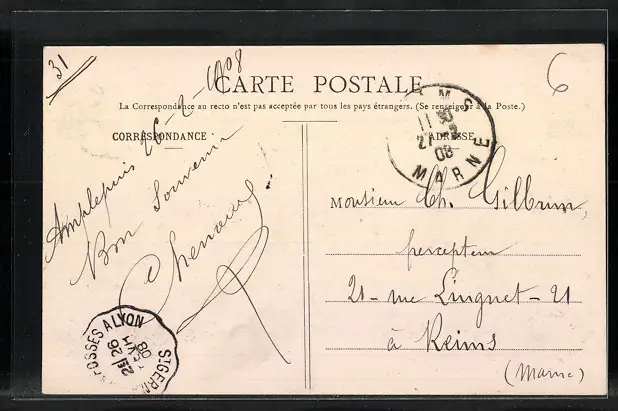 31
CARTE POSTALE
6
La Correspondance au recto n'est pas acceptée par tous les pays étrangers. (Se renseigner à la Poste.)
CORRESPONDANCE
ADRESSE
Amplepuis 26-2-1908
Bon Souvenir
MS
11 30
27 -2
08
MARNE
Monsieur Ch. Gilbrin,
percepteur
21 - rue Linguet - 21
à Reims
(Marne)
ST GERM
FOSSES A LYON
2E
26
08